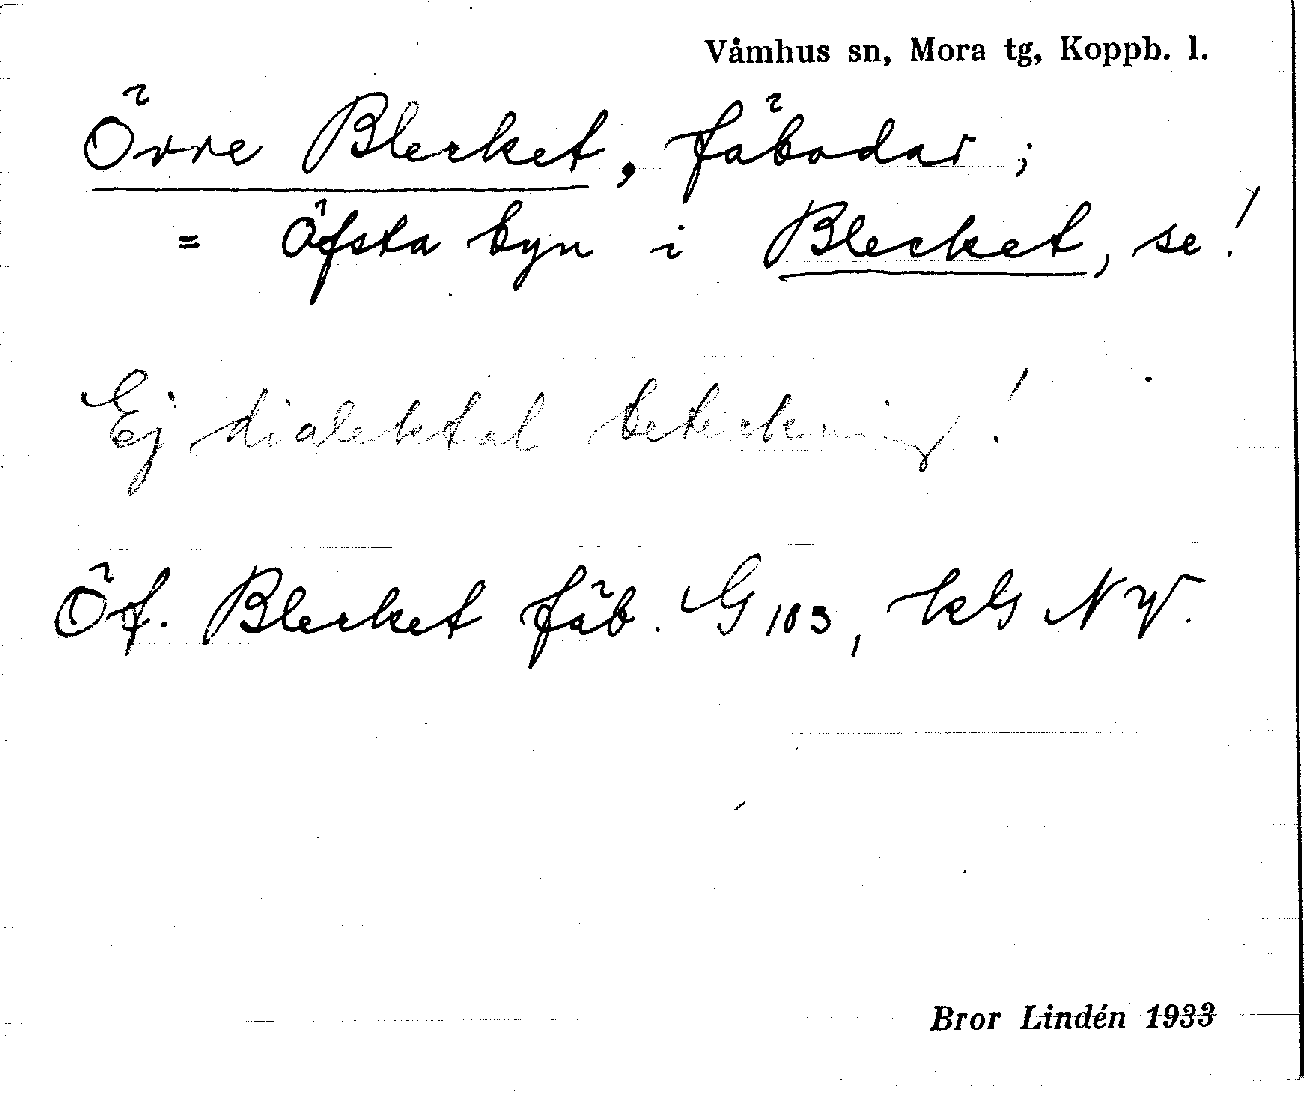 Våmhus sn, Mora tg, Koppb. l.
Övre Blecket, fäbodar;
= Öfsta byn i Blecket, se!
Ej dialektal beteckning!
Öf. Blecket fäb. G 103, kbl NV.
Bror Lindén 1933